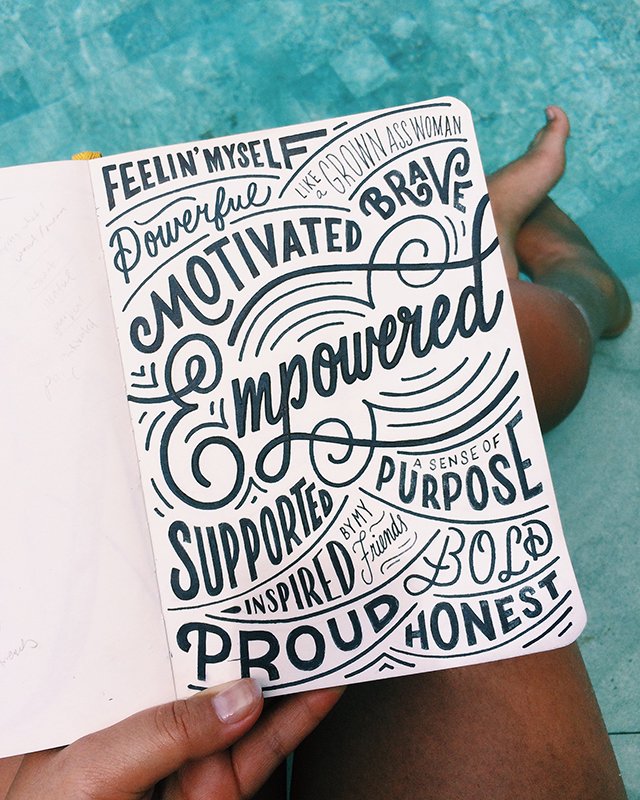 FEELIN' MYSELF
LIKE a GROWN ASS WOMAN
Powerful
BRAVE
MOTIVATED
Empowered
A SENSE OF
PURPOSE
SUPPORTED
BY MY
Friends
INSPIRED
BOLD
PROUD
HONEST